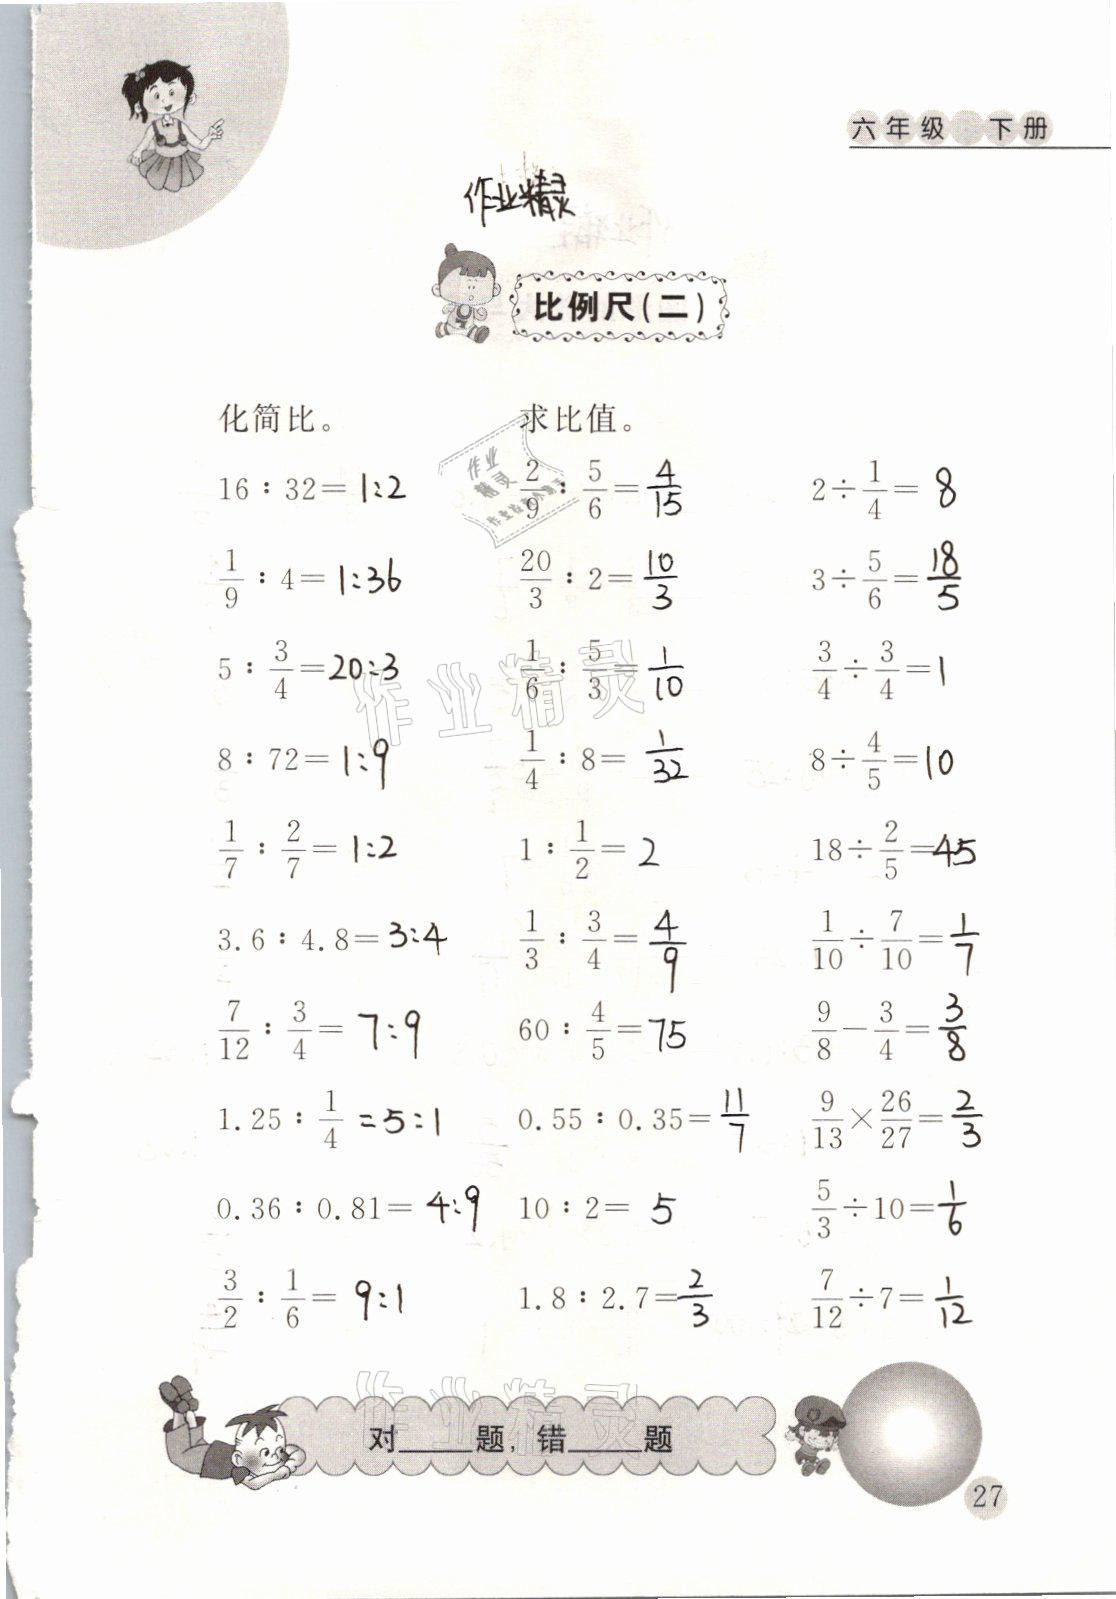 六年级 下册
作业精灵
比例尺(二)
化简比。 求比值。
16∶32=1:2 2/9∶5/6=4/15 2÷1/4=8
1/9∶4=1:36 20/3∶2=10/3 3÷5/6=18/5
5∶3/4=20:3 1/6∶5/3=1/10 3/4÷3/4=1
8∶72=1:9 1/4∶8=1/32 8÷4/5=10
1/7∶2/7=1:2 1∶1/2=2 18÷2/5=45
3.6∶4.8=3:4 1/3∶3/4=4/9 1/10÷7/10=1/7
7/12∶3/4=7:9 60∶4/5=75 9/8－3/4=3/8
1.25∶1/4=5:1 0.55∶0.35=11/7 9/13×26/27=2/3
0.36∶0.81=4:9 10∶2=5 5/3÷10=1/6
3/2∶1/6=9:1 1.8∶2.7=2/3 7/12÷7=1/12
作业精灵
作业精灵
作业精灵
对____题,错____题
27